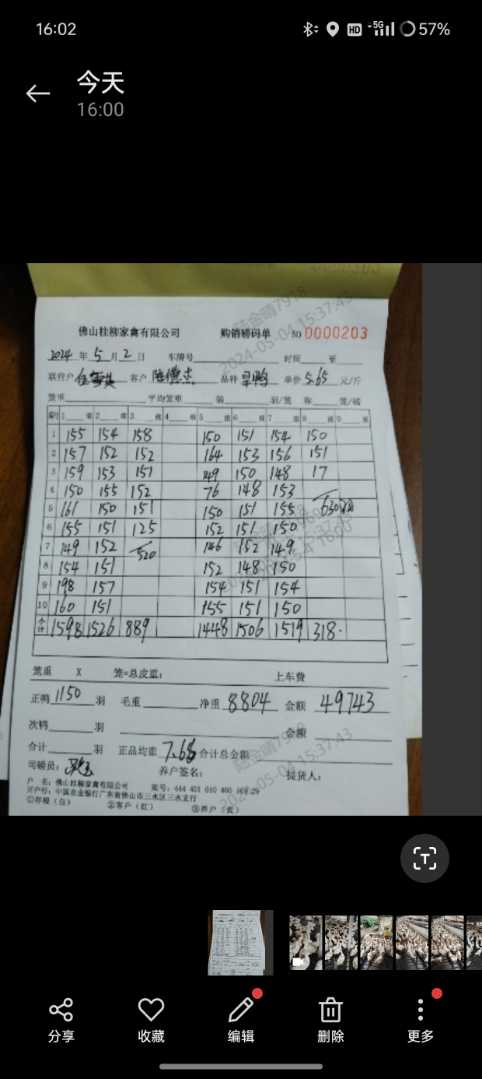 16:02
HD
5G
57%
今天
16:00
佛山桂柳家禽有限公司 购销磅码单 NO 0000203
2024 年 5 月 2 日 车牌号 时间 至
客户 品种 单价 5.65 元/斤
平均笼重
1 155 154 158 150 151 154 150
2 157 152 152 164 153 156 151
3 159 153 151 149 150 148 17
4 150 155 152 76 148 153
5 161 150 151 150 151 155 630
6 155 151 125 152 151 150
7 149 152 520 146 152 149
8 154 151 152 148 150
9 198 157 154 151 154
10 160 151 155 151 150
小计 1598 1526 889 1448 1506 1519 318
笼重 X 笼=总皮重: 上车费
正鸭 1150 羽 毛重 净重 8804 金额 49743
次鸭 羽 金额
合计 羽 正品均重 7.68 合计总金额
司磅员: 养户签名: 提货人:
户 名: 佛山桂柳家禽有限公司
①存根(白) ②客户(红) ③养户(黄)
2024-05-04 15:37:43
分享
收藏
编辑
删除
更多